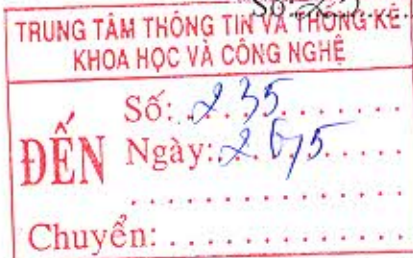 Số:
TRUNG TÂM THÔNG TIN VÀ THỐNG KÊ
KHOA HỌC VÀ CÔNG NGHỆ
ĐẾN
Số: 235
Ngày: 26/5
Chuyển: